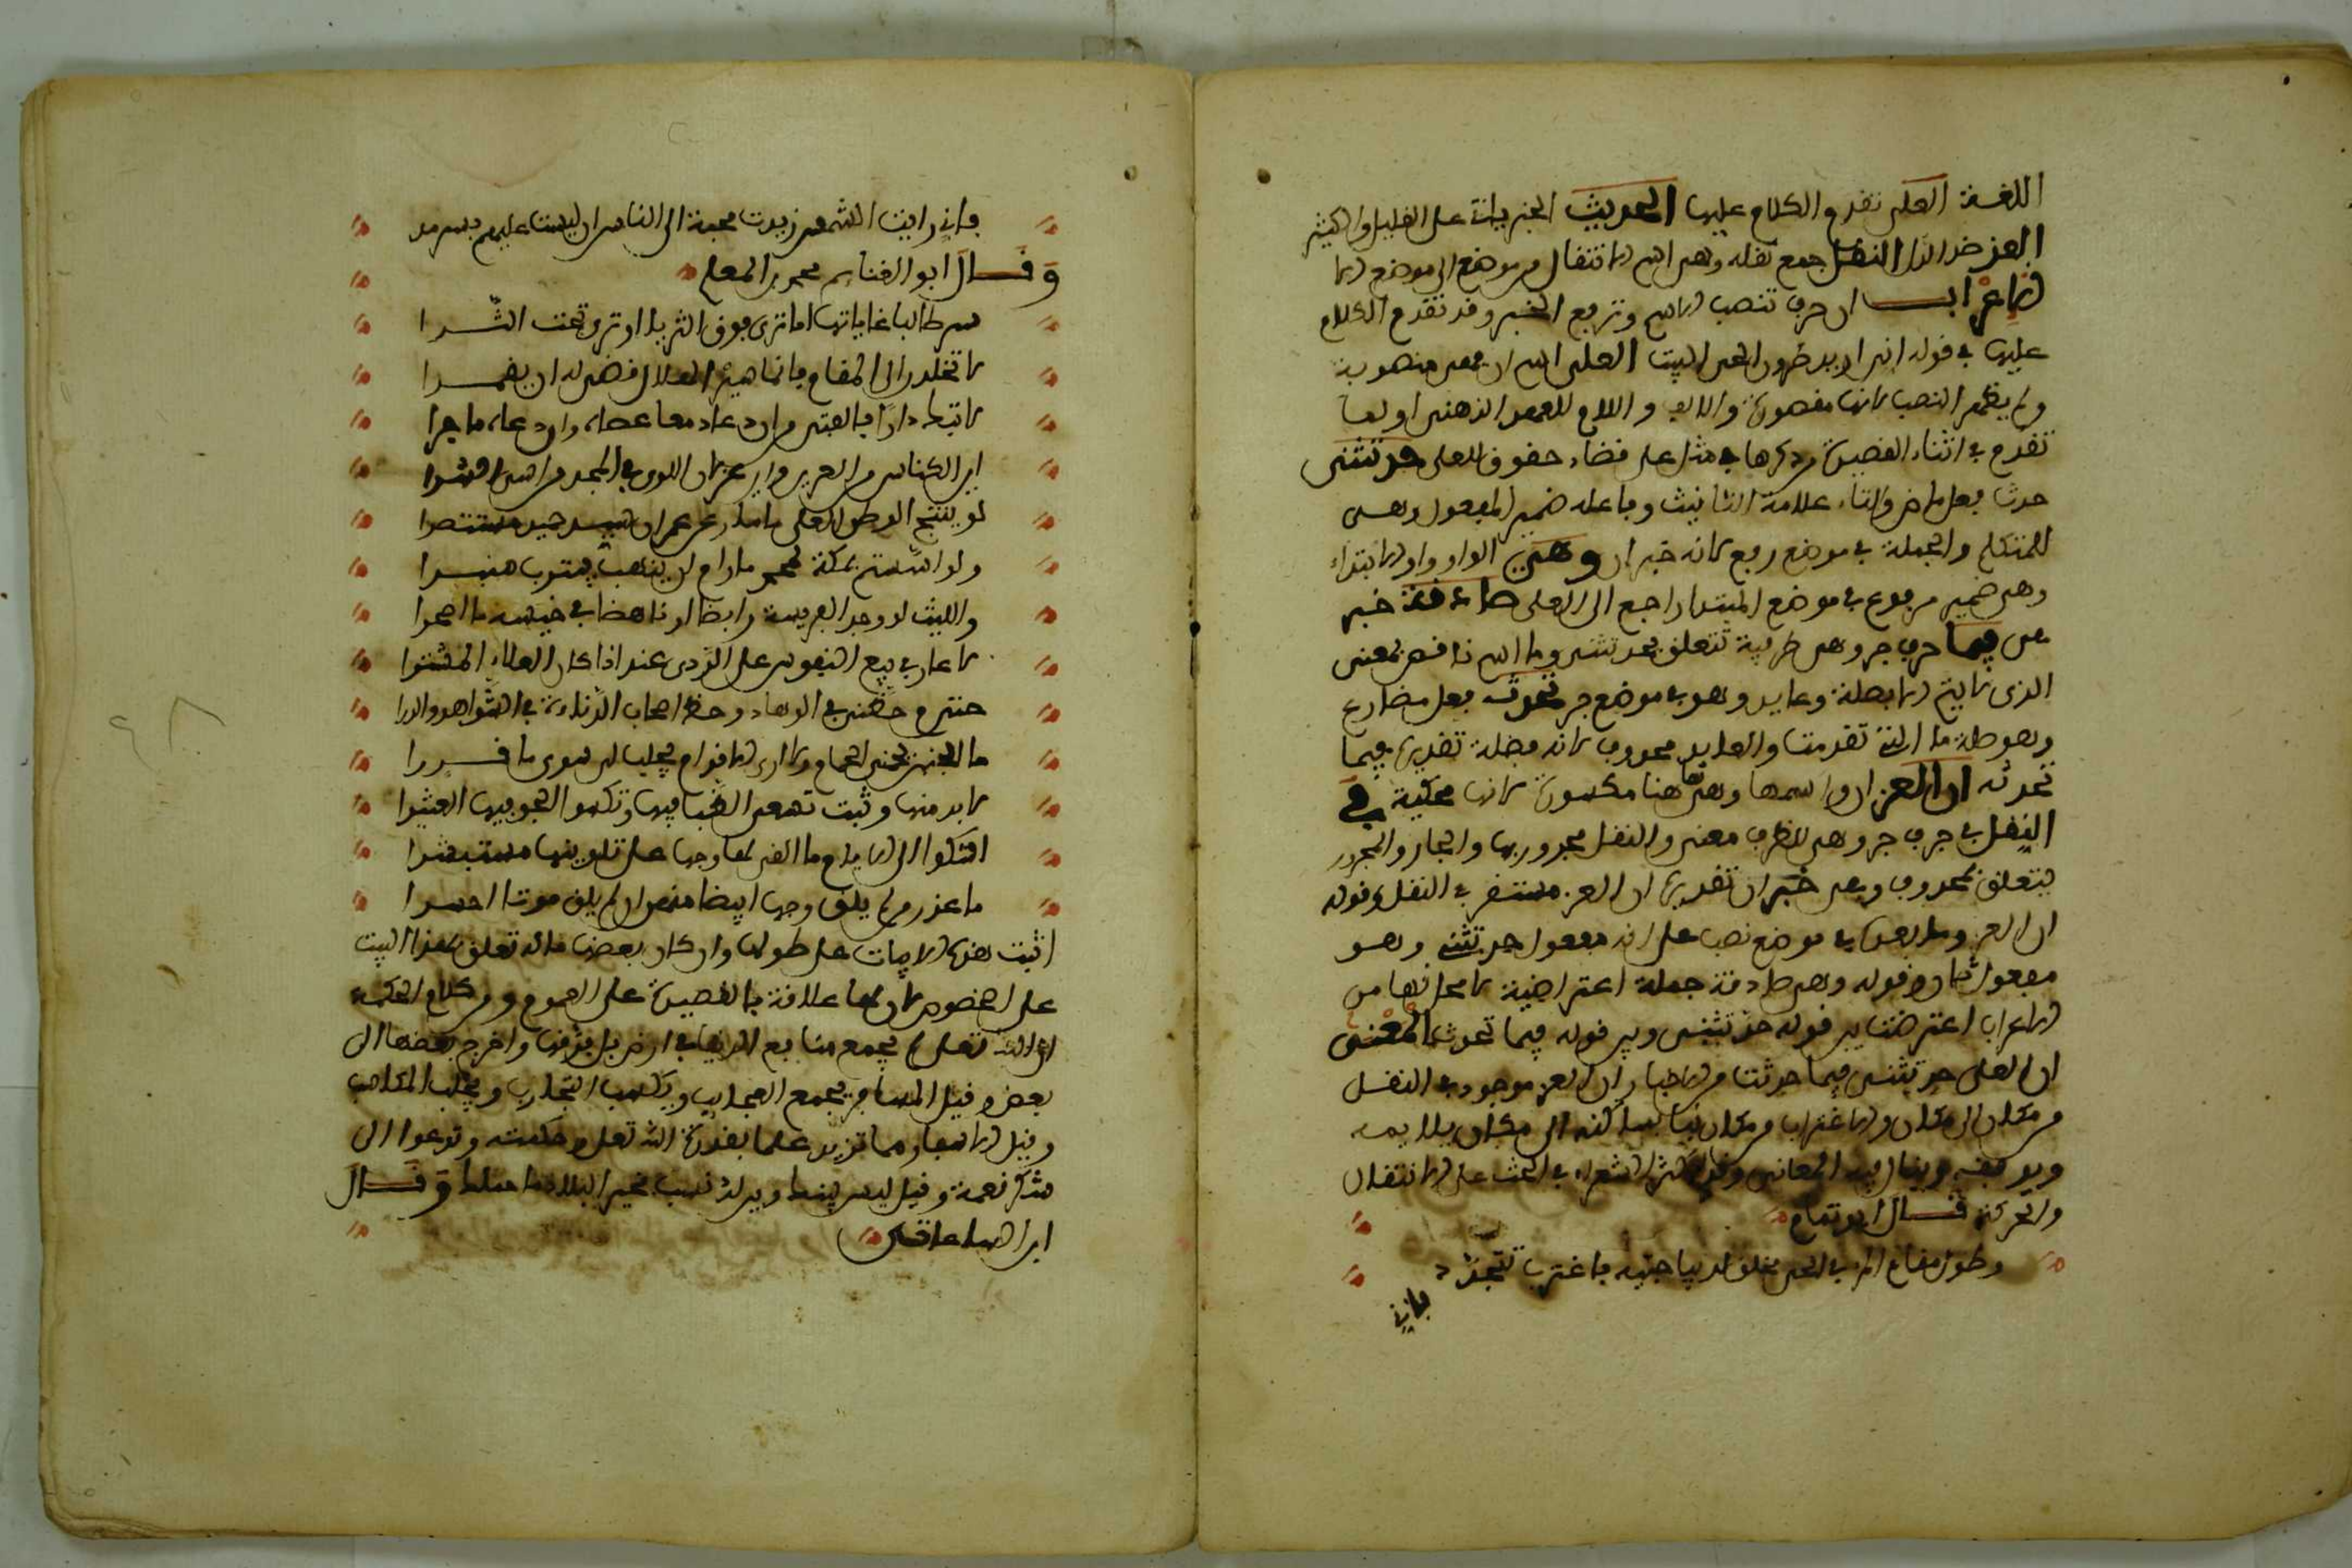 اللغة العلى تقدم الكلام عليها الحديث الخبر يأتي على القليل والكثير
العز ضد الذل النقل جمع نقلة وهي اسم الانتقال من موضع الى موضع
الاعراب ان حرف تنصب الاسم وترفع الخبر وقد تقدم الكلام
عليها في قوله اني اريد طروق الحي البيت العلى اسم ان فهي منصوبة
ولم يظهر النصب لانها مقصورة والالف واللام للعهد الذهني او لما
تقدم في اثناء القصيدة من ذكرها في مثل على قضاء حقوق للعلى حدثتني
حدث فعل ماض والتاء علامة التانيث وفاعله ضمير المفعول وهي
للمتكلم والجملة في موضع رفع لانه خبر ان وهي الواو واو الابتداء
وهي ضمير مرفوع في موضع المبتدا راجع الى العلى صادقة خبر
هي فيما حرف جر وهي ظرفية تتعلق بحدثتني وما اسم ناقص بمعنى
الذي لا يتم الا بصلة وعايد وهو في موضع جر تحدث فعل مضارع
وهو صلة ما التي تقدمت والعايد محذوف لانه فضلة تقديره فيما
تحدثه ان العز ان واسمها وهي هنا مكسورة لانها محكية في
النقل في حرف جر وهي للظرف معنى والنقل مجرور بها والجار والمجرور
يتعلق بمحذوف وهي خبر ان تقديره ان العز مستقر في النقل وقوله
ان العز وما بعده في موضع نصب على انه مفعول حدثتني وهو
مفعول ثان وقوله وهي صادقة جملة اعتراضية لا محل لها من
الاعراب اعترضت بين قوله حدثتني وبين قوله فيما تحدث المعنى
ان العلى حدثتني فيما حدثت من الاخبار ان العز موجود في النقل
من مكان الى مكان والاغتراب من مكان نبا بساكنه الى مكان يلايمه
ويوافقه وينال فيه المعاني وقد اكثر الشعراء في الحث على الانتقال
والحركة قال ابو تمام
وطول مقام المرء في الحي مخلق لديباجتيه فاغترب تتجدد
فاني
فاني رايت الشمس زيدت محبة الى الناس ان ليست عليهم بسرمد
وقال ابو الغنايم محمد بن المعلم
سر طالبا غاياتها اما ترى فوق الثريا او ترى تحت الثرا
لا تخلدن الى المقام فانما سير الهلال قضى له ان يقمرا
اين الكناس من العرين واين غزلان اللوى في المجد من اسد الشرا
والليث لو وجد الفريسة رابضا او ناهضا في خيسه ما اصحرا
لا عار في بيع النفوس على الردى عند اذا كان العلاء المشترا
حتى م حظي في الوهاد وحظ اصحاب الدناءة في الشواهق والذرا
ما الجبن يحمي الحمام ولا ارى الاقدام يجلب لي سوى ما قدرا
لا بد منها وثبت تهمي الظبا فيها وتكسوا الجو فيها العثيرا
اشكوا الى الايام ما القى لها وجها على تلوينها مستبشرا
ما عذر من لم يلق وجها ابيضا منهن ان لم يلق موتا احمرا
اثبت هذه الابيات على طولها وان كان بعضها ما له تعلق بهذا البيت
على الخصوص لان لها علاقة بالقصيدة على العموم ومن كلام الحكماء
ان الله تعلى لم يجمع منافع الدنيا في ارض بل فرقها واخرج بعضها الى
بعض وقيل المسافر يجمع العجايب ويكسب التجارب ويجلب المكاسب
وقيل الاسفار مما تزيد علما بقدرة الله تعلى وحكمته وتدعوا الى
شكر نعمه وقيل ليس بينك وبين بلد نسب فخير البلاد ما حملك وقال